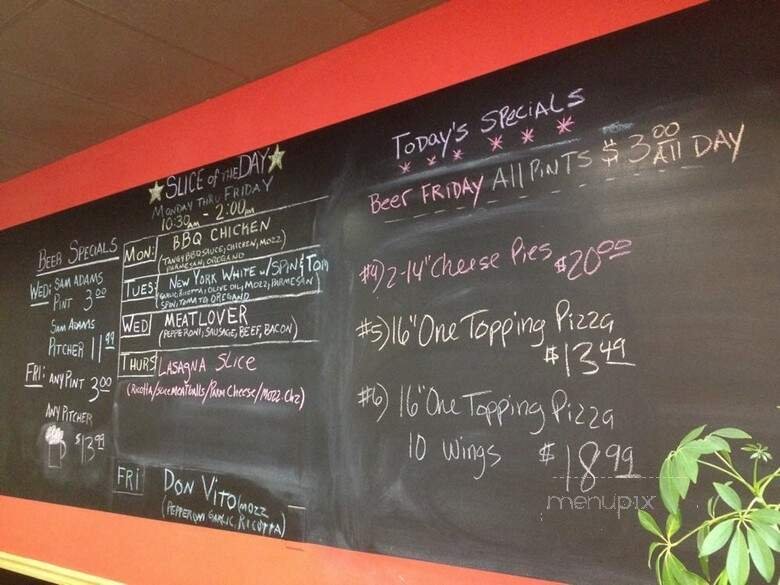 BEER SPECIALS
WED: SAM ADAMS
PINT 3.00
SAM ADAMS
PITCHER 11.99
FRI: ANY PINT 3.00
ANY PITCHER
$13.99
SLICE of the DAY
MONDAY THRU FRIDAY
10:30 AM - 2:00 PM
MON: BBQ CHICKEN
(TANGY BBQ SAUCE, CHICKEN, MOZZ
PARMESAN, OREGANO
TUES: NEW YORK WHITE w/SPIN & TOM
GARLIC, RICOTTA, OLIVE OIL, MOZZ, PARMESAN
SPIN, TOMATO OREGANO
WED MEATLOVER
(PEPPERONI, SAUSAGE, BEEF, BACON)
THURS LASAGNA SLICE
(Ricotta/SLICE MEATBALLS/PARM CHEESE/MOZZ. CHZ)
FRI DON VITO
(PEPPERONI GARLIC, RICOTTA) MOZZ
TODAY'S SPECIALS
BEER FRIDAY All PINTS $3.00 All DAY
#4) 2-14" Cheese Pies $20.00
#5) 16" One Topping Pizza
$13.49
#6) 16" One Topping Pizza
10 Wings $18.99
menupix